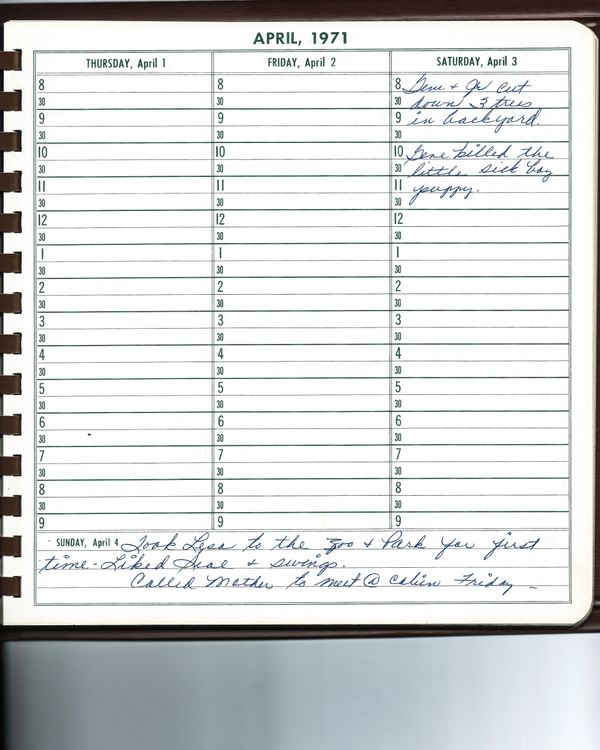 APRIL, 1971
THURSDAY, April 1
8
30
9
30
10
30
11
30
12
30
1
30
2
30
3
30
4
30
5
30
6
30
7
30
8
30
9
FRIDAY, April 2
8
30
9
30
10
30
11
30
12
30
1
30
2
30
3
30
4
30
5
30
6
30
7
30
8
30
9
SATURDAY, April 3
8 Gene + Jr cut
30 down 3 trees
9 in backyard.
30
10 Gene killed the
30 little sick boy
11 puppy.
30
12
30
1
30
2
30
3
30
4
30
5
30
6
30
7
30
8
30
9
SUNDAY, April 4 Took Lisa to the zoo + Park for first
time - Liked Seal + swings.
Called Mother to meet @ cabin Friday -